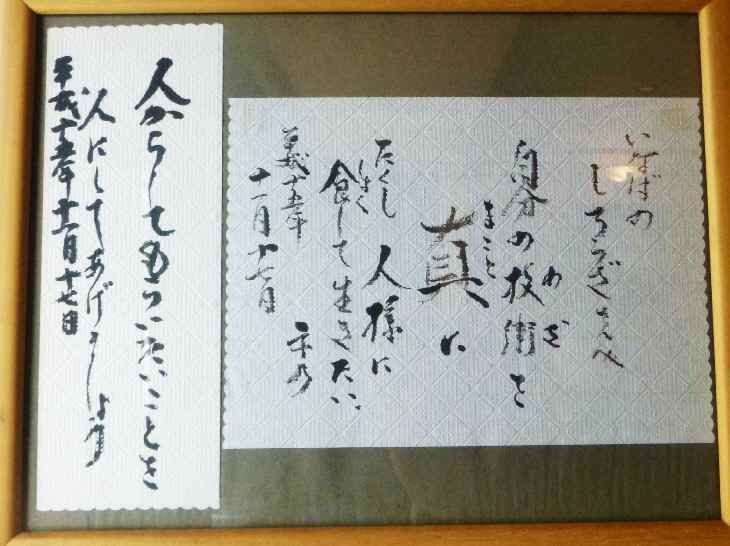 いなばの
自分の技術を
わざ
真に
まこと
たくし 人様に
食して生きたい
平成十五年
十一月十七日
人からしてもらいたいことを
人にしてあげましょう
平成十五年十一月十七日